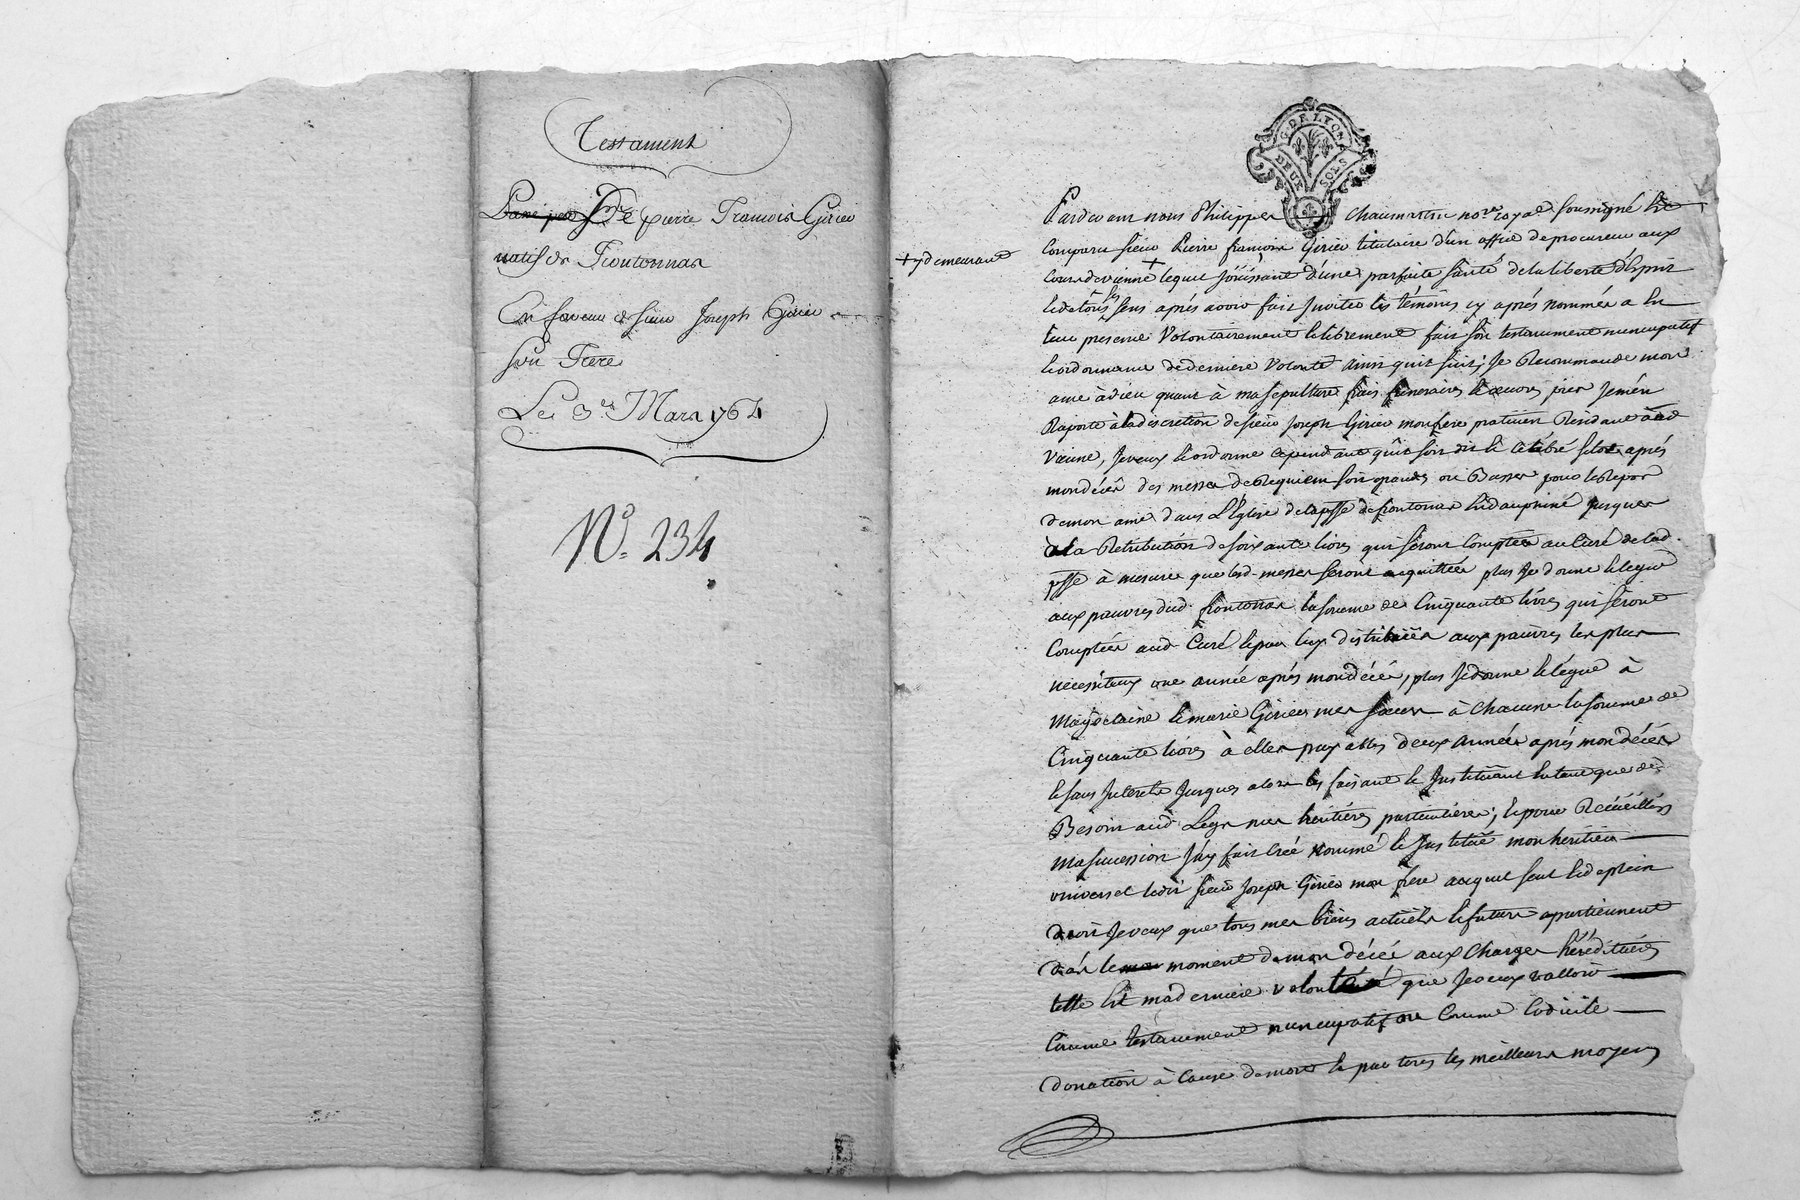 Testament
De sr pierre François Girieu
natif de Frontonnas
En faveur de sieur Joseph Girieu
son Frere
Le 3e Mars 1764
No. 234
G DE LYON
DEUX SOLS
Pardevant nous Philippe Chaumartin nore royal soussigné
+ y demeurant
Comparu sieur Pierre françois Girieu titulaire d'un office de procureur aux
Cours de vienne + lequel joüissant d'une parfaite santé de la liberté d'Esprit
et de tous ses sens aprés avoir fait inviter les témoins cy aprés nommés a en
leur presence Volontairement et librement fait son testament nuncupatif
et ordonnance de derniere Volonté ainsi qu'il suit; Je Recommande mon
ame à dieu quant à ma sepulture frais funeraires et œuvres pies Je m'en
Raporte à la discretion de sieur Joseph Girieu mon frere praticien Residant aud
Vienne, Je veux et ordonne cependant qu'il soit dit et célébré aprés
mon décés des messes de Requiem soit grandes ou Basses pour le Repos
de mon ame dans L'Eglise de la psse de frontonas en dauphiné jusques
à la Retribution de soixante livres qui seront Comptées au Curé de lad.
psse à mesure que lesd. messes seront acquittées plus Je donne et legue
aux pauvres dud. frontonas la somme de Cinquante livres qui seront
Comptées aud. Curé et par luy distribuées aux pauvres les plus
necessiteux une année aprés mon décés, plus Je donne et légue à
Magdelaine et marie Girieu mes sœurs à chacune la somme de
Cinquante livres à elles payables deux années aprés mon décés
et sans Interets Jusques alors les faisant et Instituant en tant que de
Besoin aud. Legs mes heritiéres particuliéres; et pour Recüeillir
ma succession J'ay fait créé nommé et Institué mon heritier
universel led. sieur Joseph Girieu mon frere auquel seul et de plein
droit Je veux que tous mes biens actüels et futurs apartiennent
dés le moment de mon décés aux charges héréditaires
telle est ma derniere volonté que Je veux valloir
Comme testament nuncupatif ou Comme Codicile
donation à Cause de mort et par tous les meilleurs moyens